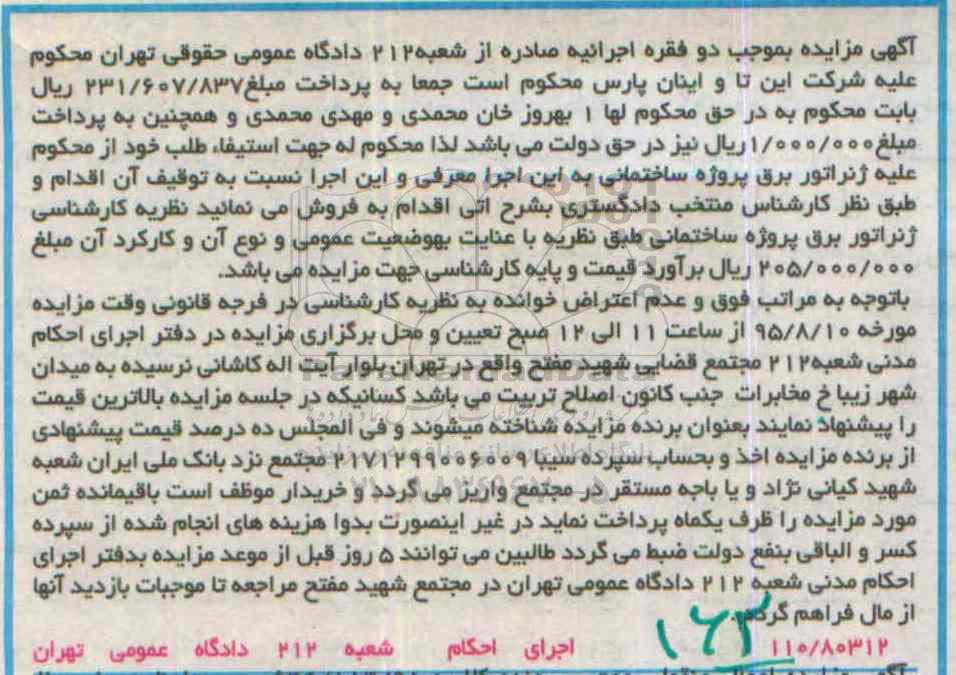 آگهی مزایده بموجب دو فقره اجرائیه صادره از شعبه۲۱۲ دادگاه عمومی حقوقی تهران محکوم
علیه شرکت این تا و اینان پارس محکوم است جمعا به پرداخت مبلغ۲۳۱/۶۰۷/۸۳۷ ریال
بابت محکوم به در حق محکوم لها ۱ بهروز خان محمدی و مهدی محمدی و همچنین به پرداخت
مبلغ۱/۰۰۰/۰۰۰ریال نیز در حق دولت می باشد لذا محکوم له جهت استیفاء طلب خود از محکوم
علیه ژنراتور برق پروژه ساختمانی به این اجرا معرفی و این اجرا نسبت به توقیف آن اقدام و
طبق نظر کارشناس منتخب دادگستری بشرح اتی اقدام به فروش می نمائید نظریه کارشناسی
ژنراتور برق پروژه ساختمانی طبق نظریه با عنایت بهوضعیت عمومی و نوع آن و کارکرد آن مبلغ
۲۰۵/۰۰۰/۰۰۰ ریال برآورد قیمت و پایه کارشناسی جهت مزایده می باشد.
باتوجه به مراتب فوق و عدم اعتراض خوانده به نظریه کارشناسی در فرجه قانونی وقت مزایده
مورخه ۹۵/۸/۱۰ از ساعت ۱۱ الی ۱۲ صبح تعیین و محل برگزاری مزایده در دفتر اجرای احکام
مدنی شعبه۲۱۲ مجتمع قضایی شهید مفتح واقع در تهران بلوار آیت اله کاشانی نرسیده به میدان
شهر زیبا خ مخابرات جنب کانون اصلاح تربیت می باشد کسانیکه در جلسه مزایده بالاترین قیمت
را پیشنهاد نمایند بعنوان برنده مزایده شناخته میشوند و فی المجلس ده درصد قیمت پیشنهادی
از برنده مزایده اخذ و بحساب سپرده سیبا ۲۱۷۱۲۹۹۰۰۶۰۰۹ مجتمع نزد بانک ملی ایران شعبه
شهید کیانی نژاد و یا باجه مستقر در مجتمع واریز می گردد و خریدار موظف است باقیمانده ثمن
مورد مزایده را ظرف یکماه پرداخت نماید در غیر اینصورت بدوا هزینه های انجام شده از سپرده
کسر و الباقی بنفع دولت ضبط می گردد طالبین می توانند ۵ روز قبل از موعد مزایده بدفتر اجرای
احکام مدنی شعبه ۲۱۲ دادگاه عمومی تهران در مجتمع شهید مفتح مراجعه تا موجبات بازدید آنها
از مال فراهم گردد.
۱۱۰/۸۰۳۱۲ اجرای احکام شعبه ۲۱۲ دادگاه عمومی تهران
۱۶۲